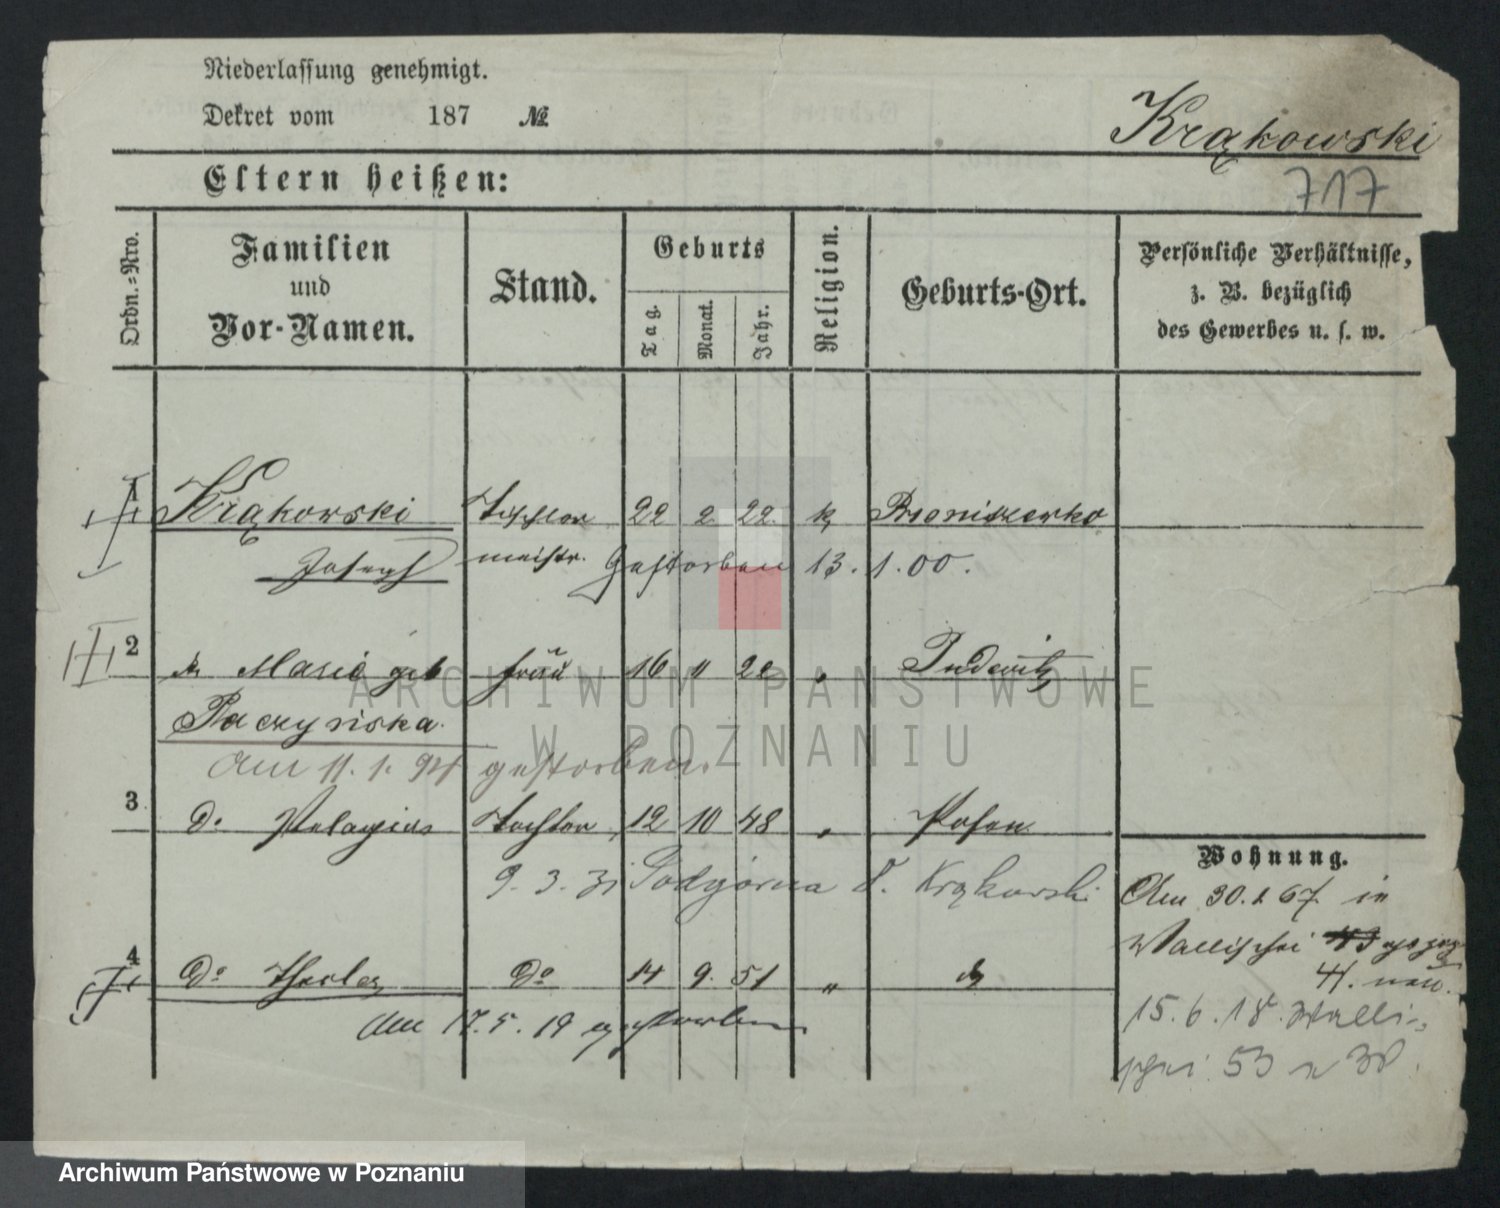 Niederlassung genehmigt.
Dekret vom 187 №
Krąkowski
Eltern heißen:
717
Ordn.-Nro.
Familien
und
Vor-Namen.
Stand.
Geburts
Tag.
Monat.
Jahr.
Religion.
Geburts-Ort.
Persönliche Verhältnisse,
z. B. bezüglich
des Gewerbes u. s. w.
1 Krąkowski Tischler 22 2 22 k Broniszewko
Joseph meistr. Gestorben 13. 1. 00.
2 Marie geb Frau 16 " 22 " Pudewitz
Paczyńska.
am 11. 1. 94 gestorben.
3 d. Pelagia Tochter 12 10 48 " Posen
9. 3. 31 Podgórna 8. Krąkowski
4 do do 14 9. 51 " do
am 17. 5. 19 gestorben
Wohnung.
Am 30. 67 in
Wallischei
41. neu.
15. 6. 18. Walli-
schei 53 38.
ARCHIWUM PAŃSTWOWE
W POZNANIU
Archiwum Państwowe w Poznaniu